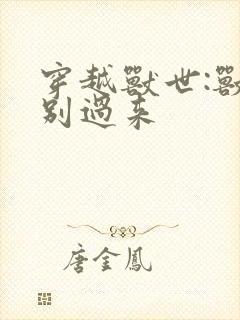 穿越獸世:獸
別過来
唐金鳳